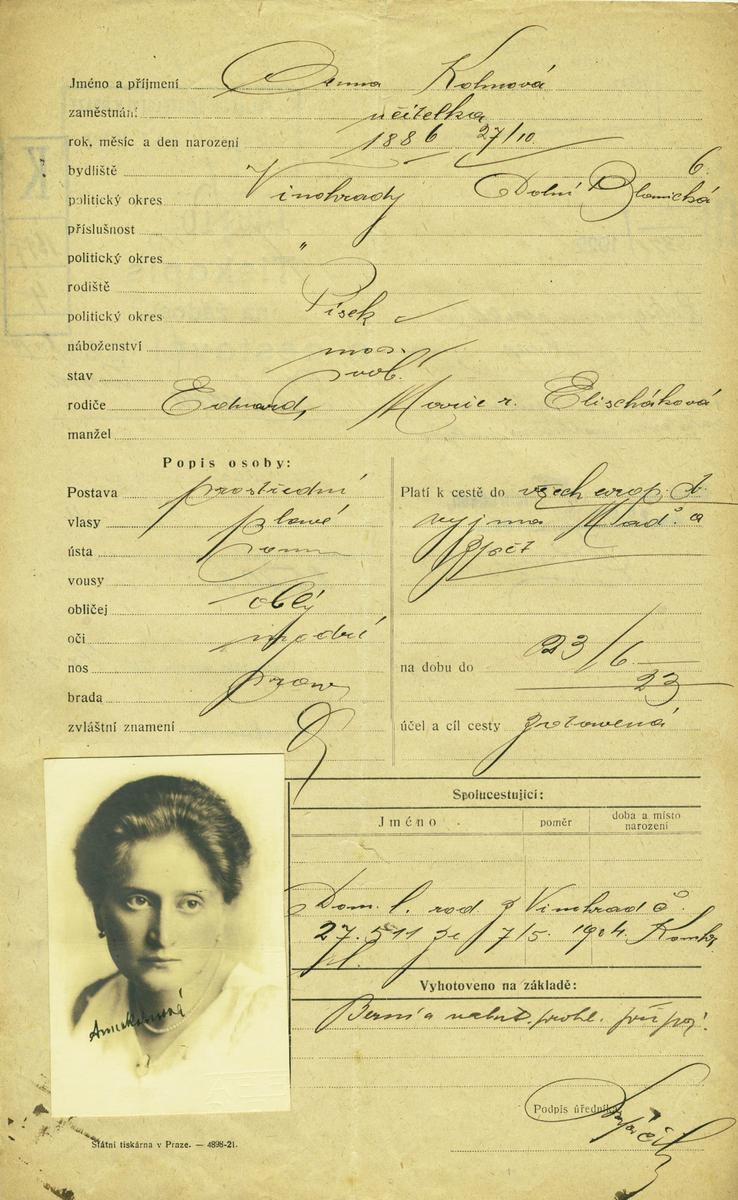 Jméno a příjmení Anna Kohnová
zaměstnání učitelka
rok, měsíc a den narození 1886 27/10.
bydliště 6.
politický okres Vinohrady Dolní Blanická
příslušnost
politický okres "
rodiště
politický okres Písek
náboženství mos.
stav svob.
rodiče Eduard, Marie r. Elischáková
manžel
Popis osoby:
Postava prostřední
vlasy plavé
ústa
vousy
obličej oblý
oči modré
nos
brada
zvláštní znamení
Platí k cestě do všech evrop. st.
vyjma Maď. a
na dobu do 23/6. 23
účel a cíl cesty zotavená
Spolucestující:
Jméno poměr doba a místo narození
Dom. l. rod. z Vinohradů
27.511 ze 7/5. 1904.
Vyhotoveno na základě:
Berní a prohl.
Podpis úředníka
Anna Kohnová
Státní tiskárna v Praze. — 4898-21.